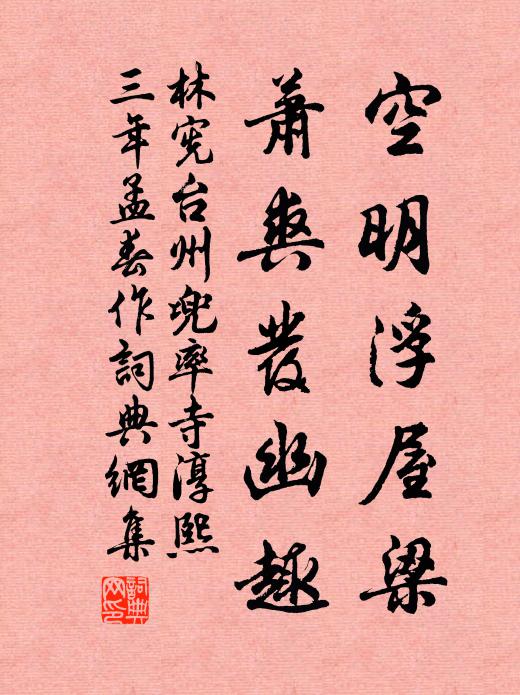 空明浮屋梁
萧爽發幽趣
林宪台州兜率寺淳熙
三年孟春作詞典網集
詞典网印